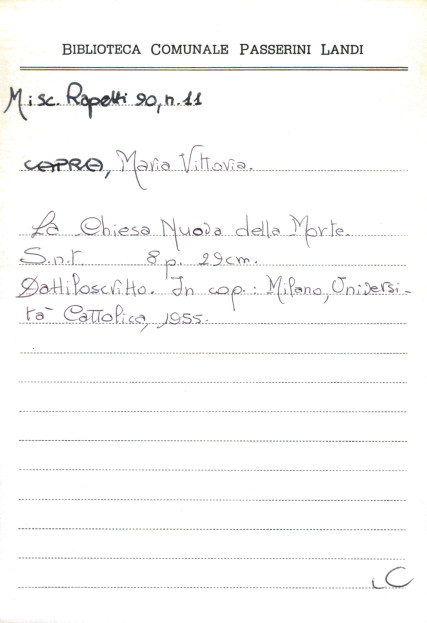 BIBLIOTECA COMUNALE PASSERINI LANDI
Misc. Rapetti 90, n. 11
CAPRA, Maria Vittoria.
La Chiesa Nuova della Morte.
S.n.t. 8 p. 29 cm.
Dattiloscritto. In cop.: Milano, Universi-
tà Cattolica, 1955.